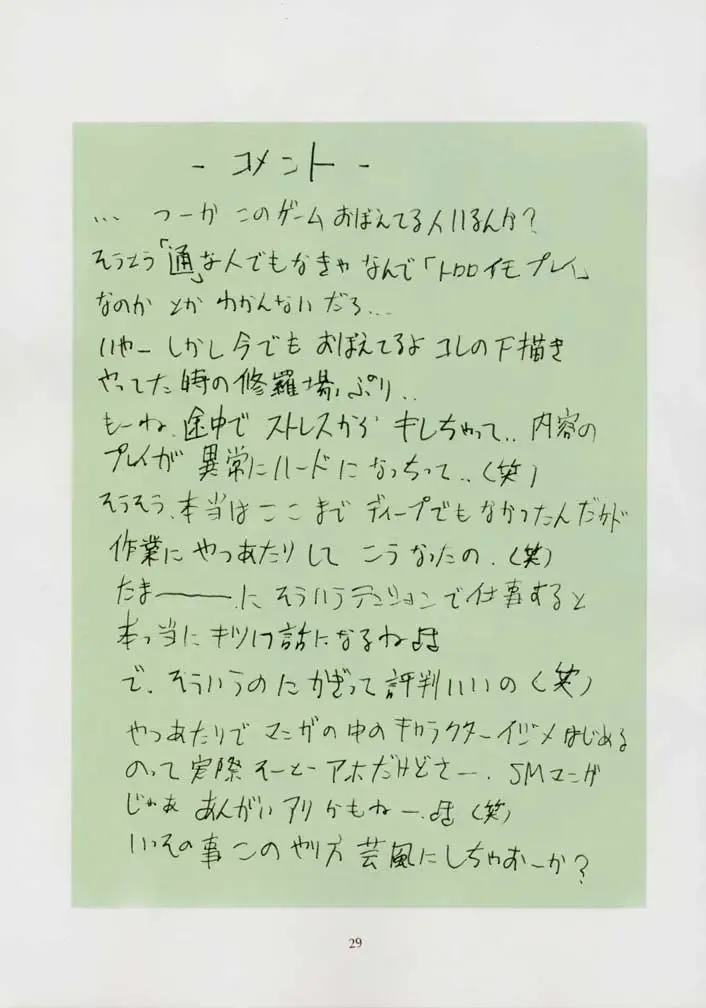 - コメント -
... つーか このゲーム おぼえてる人いるんか?
そうとう「通」な人でもなきゃ なんで「トロロイモプレイ」
なのか とか わかんないだろ...
いやー しかし 今でも おぼえてるよ コレの下描き
やってた時の修羅場っぷり..
もーね、途中で ストレスから キレちゃって.. 内容の
プレイが 異常にハードに なっちって..(笑)
そうそう、本当は ここまで ディープでもなかったんだけど
作業に やつあたりして こうなったの.(笑)
たま――――.に そういうテンションで仕事すると
本っ当に キツい話になるね♫
で、そういうのに かぎって 評判いいの(笑)
やつあたりで マンガの中の キャラクターイジメ はじめる
のって 実際 そーとー アホだけどさー. SMマンガ
じゃあ あんがい アリ かもねー.♫(笑)
いっその事 このやり方 芸風に しちゃおーか?
29